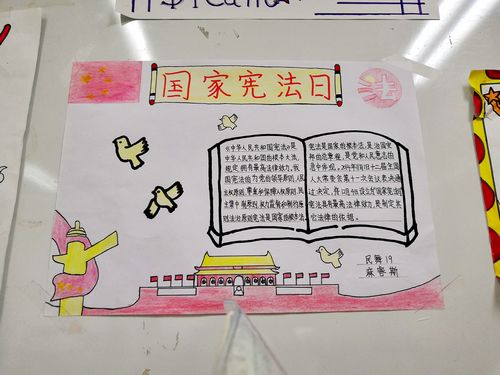 国家宪法日
法
《中华人民共和国宪法》是
中华人民共和国的根本大法,
规定拥有最高法律效力。我
国宪法的为党的领导原则,人民
主权原则,尊重和保障人权原则,民
主集中制原则,权力监督和制约原
则法治原则宪法是国家的根本法,
宪法是国家的根本法,是治国安
邦的总章程,是党和人民意志的
集中体现。2014年11月1日十二届全国
人大常委会第十一次会议表决通
过决定,将12月4日设立为"国家宪法日"
宪法具有最高法律效力,是制定其
它法律的依据。
民舞19
麻容斯